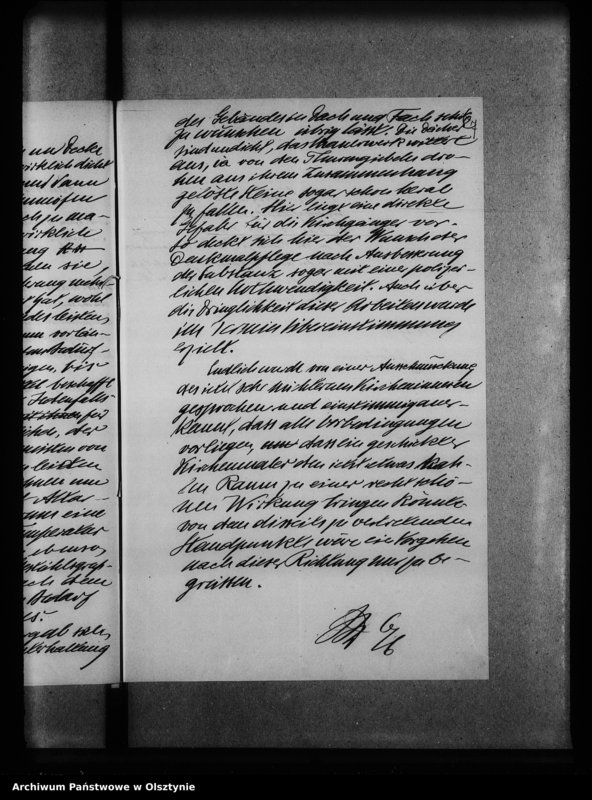 des Gebäudes in Dach und Fach sehr
zu wünschen übrig lässt. Die Dächer
sind undicht, das Mauerwerk wittert
aus, ja von den Turmgiebeln dro-
hen aus ihrem Zusammenhang
gelöste Steine sogar schon herab
zu fallen. Hier liegt eine direkte
Gefahr für die Kirchgänger vor.
So deckt sich hier der Wunsch der
Denkmalpflege nach Ausbesserung
der Substanz sogar mit einer polizei-
lichen Notwendigkeit. Auch über
die Dringlichkeit dieser Arbeiten wurde
im Termin Übereinstimmung
erzielt.
Endlich wurde von einer Ausschmückung
des jetzt sehr nüchternen Kircheninneren
gesprochen und einstimmig aner-
kannt, dass alle Vorbedingungen
vorliegen, um dass ein geschickter
Kirchenmaler den jetzt etwas kah-
len Raum zu einer recht schö-
nen Wirkung bringen könnte
von dem diesseits zu vertretenden
Standpunkte wäre ein Vorgehen
nach dieser Richtung nur zu be-
grüssen.
6/6
in Decke
wirklich dicht
und dann
wirkliche
den sie,
hat, wohl
leisten
bis
der
leisten
eine
ebenso
Bedarf
Archiwum Państwowe w Olsztynie